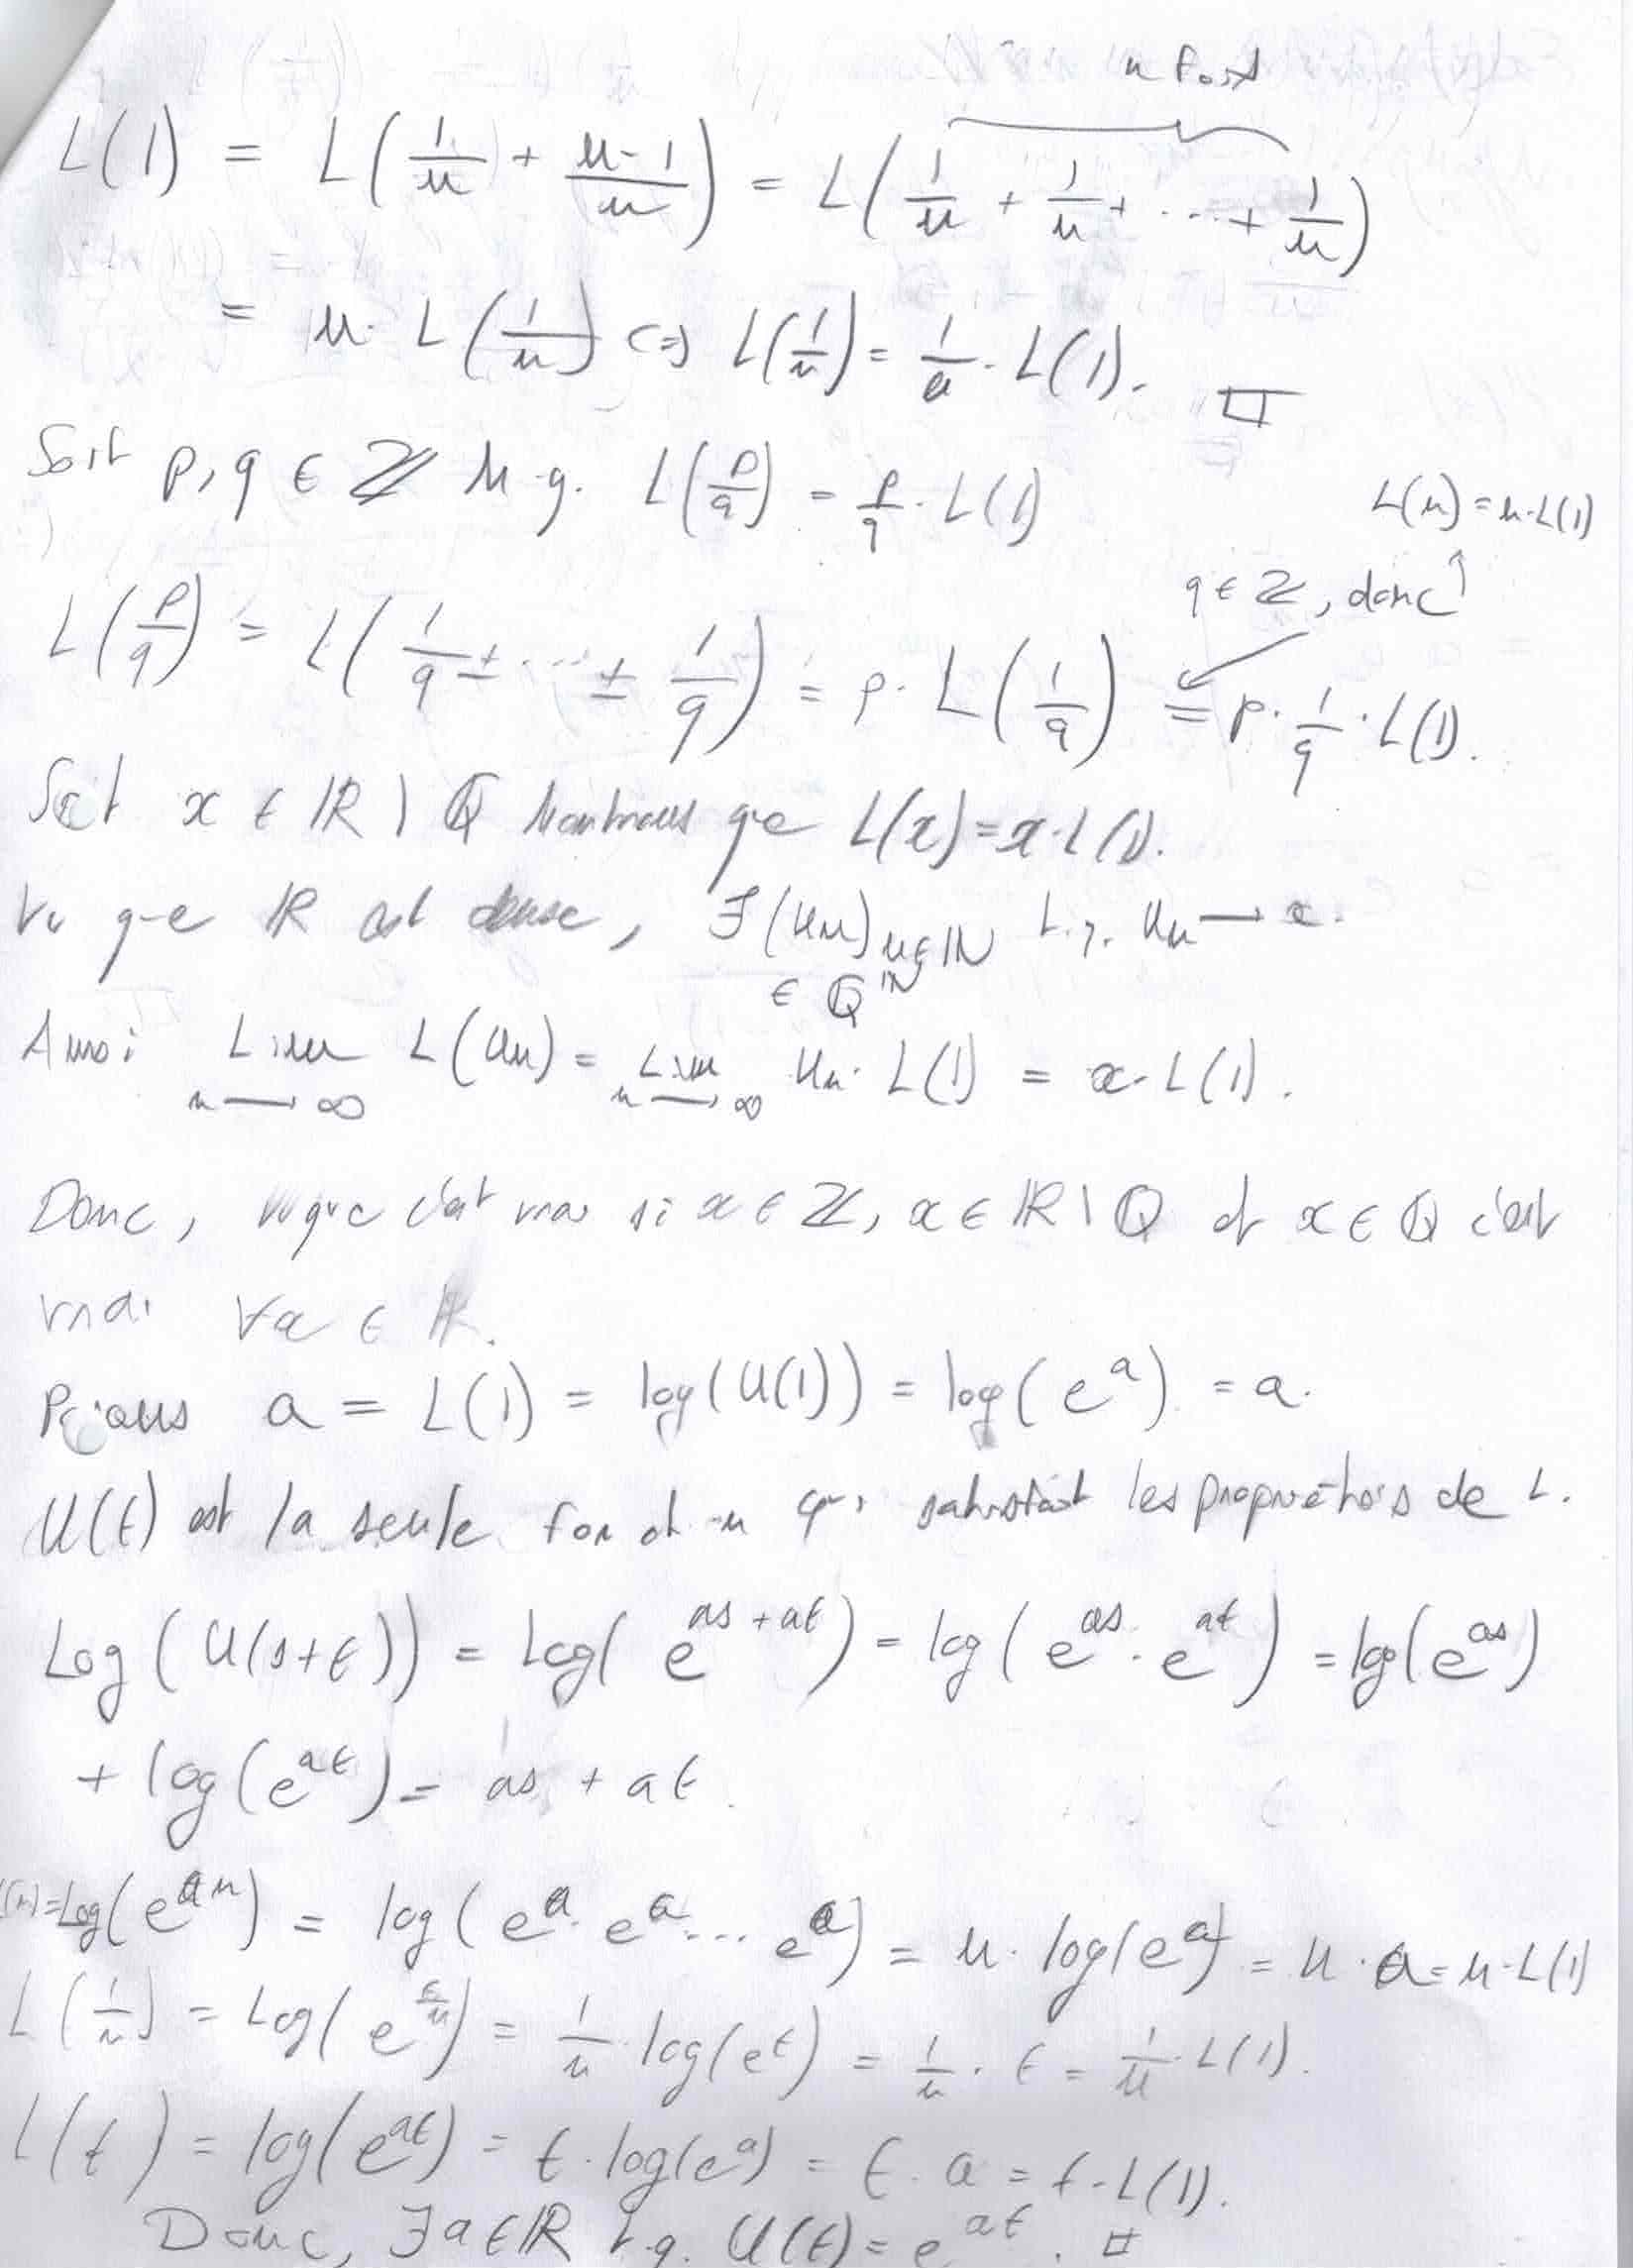 n fois
L(1) = L(1/n + (n-1)/n) = L(1/n + 1/n + ... + 1/n)
= n · L(1/n) <=> L(1/n) = 1/n · L(1). □
Soit p, q ∈ ℤ M.q. L(p/q) = p/q · L(1)
L(n) = n·L(1)
q ∈ ℤ, donc ↑
L(p/q) = L(1/q ± ... ± 1/q) = p · L(1/q) = p · 1/q · L(1).
Soit x ∈ ℝ \ ℚ Montrons que L(x) = x·L(1).
Vu que ℝ est dense, ∃(Un)n∈ℕ t.q. Un → x.
∈ ℚ^ℕ
Ainsi Lim n→∞ L(Un) = Lim n→∞ Un · L(1) = x·L(1).
Donc, vu que c'est vrai si x ∈ ℤ, x ∈ ℝ \ ℚ et x ∈ ℚ c'est
vrai ∀x ∈ ℝ.
Posons a = L(1) = log(U(1)) = log(e^a) = a.
U(t) est la seule fonction qui satisfait les propriétés de L.
Log(U(s+t)) = Log(e^(as+at)) = log(e^(as) · e^(at)) = log(e^(as))
+ log(e^(at)) = as + at.
L(n) = Log(e^(an)) = log(e^a · e^a ... e^a) = n · log(e^a) = n · a = n·L(1)
L(1/n) = Log(e^(t/n)) = 1/n · log(e^t) = 1/n · t = 1/n · L(1).
L(t) = log(e^(at)) = t · log(e^a) = t · a = t·L(1).
Donc, ∃a∈ℝ t.q. U(t) = e^(at). □